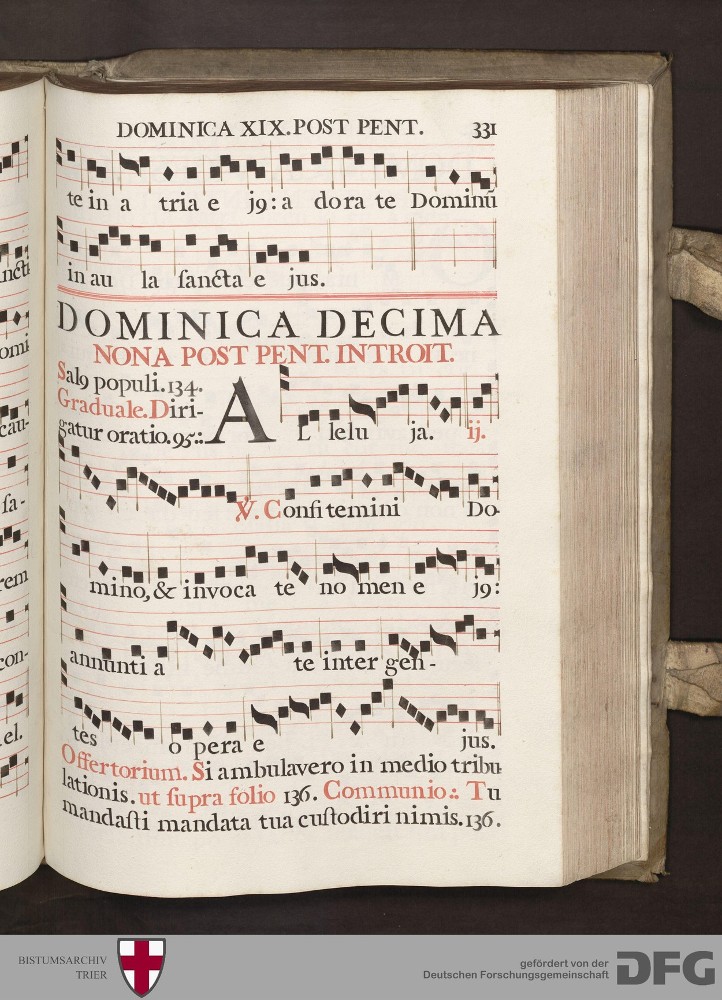 DOMINICA XIX. POST PENT. 331
te in a tria e j9: a dora te Dominū
in au la ſancta e jus.
DOMINICA DECIMA
NONA POST PENT. INTROIT.
Sal9 populi. 134.
Graduale. Diri-
gatur oratio. 95.:
AL lelu ja. ij.
℣. Confitemini Do-
mino, & invoca te no men e j9:
annunti a te inter gen-
tes o pera e jus.
Offertorium. Si ambulavero in medio tribu-
lationis. ut ſupra folio 136. Communio.: Tu
mandaſti mandata tua cuſtodiri nimis. 136.
omi
cau-
ſa-
rem
con-
el.
BISTUMSARCHIV
TRIER
gefördert von der
Deutschen Forschungsgemeinschaft
DFG